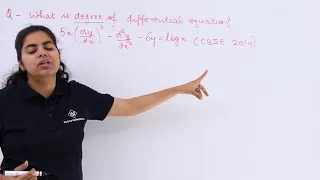 Q- What is degree of differential equation?
5x(dy/dx)² - d²y/dx² - 6y = log x (CBSE 2010)